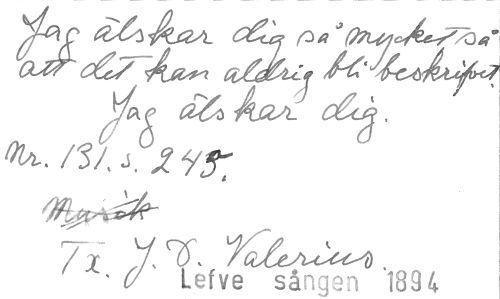 Jag älskar dig så mycket så
att det kan aldrig bli beskrifvet.
Jag älskar dig.
Nr. 131. s. 245.
Musik
Tx. J. D. Valerius.
Lefve sången 1894